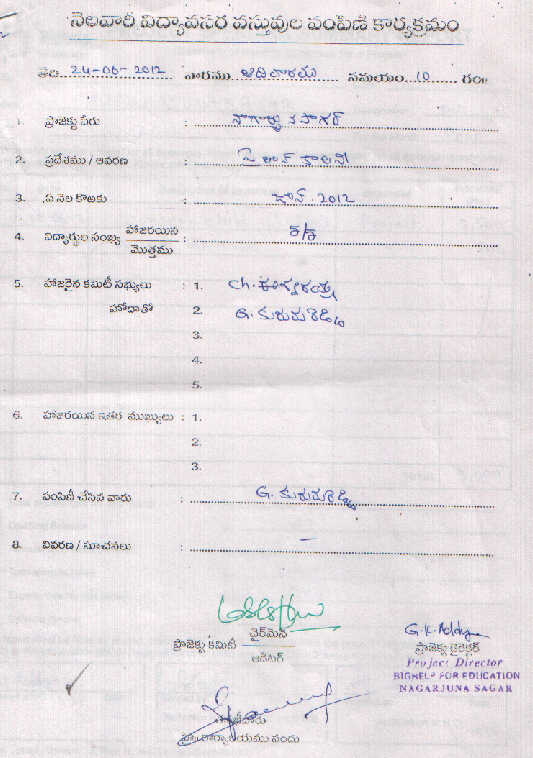 నెలవారీ విద్యావసర వస్తువుల పంపిణి కార్యక్రమం
తేది 24-06-2012 వారము ఆదివారము సమయం 10 గం॥
1. ప్రాజెక్టు పేరు : నాగార్జునసాగర్
2. ప్రదేశము / ఆవరణ : పైలాన్ కాలనీ
3. ఏ నెల కొఱకు : జూన్ 2012
4. విద్యార్థుల సంఖ్య హాజరయిన / మొత్తము : 5/5
5. హాజరైన కమిటీ సభ్యులు : 1. Ch.
హోదాతో 2. G.
3.
4.
5.
6. హాజరయిన ఇతర ముఖ్యులు : 1.
2.
3.
7. పంపిణీ చేసిన వారు : G.
8. వివరణ / సూచనలు : –
ప్రాజెక్టు కమిటీ ఛైర్మెన్
ఆడిటర్
G.K. Reddy
ప్రాజెక్టు డైరెక్టర్
Project Director
BIGHELP FOR EDUCATION
NAGARJUNA SAGAR